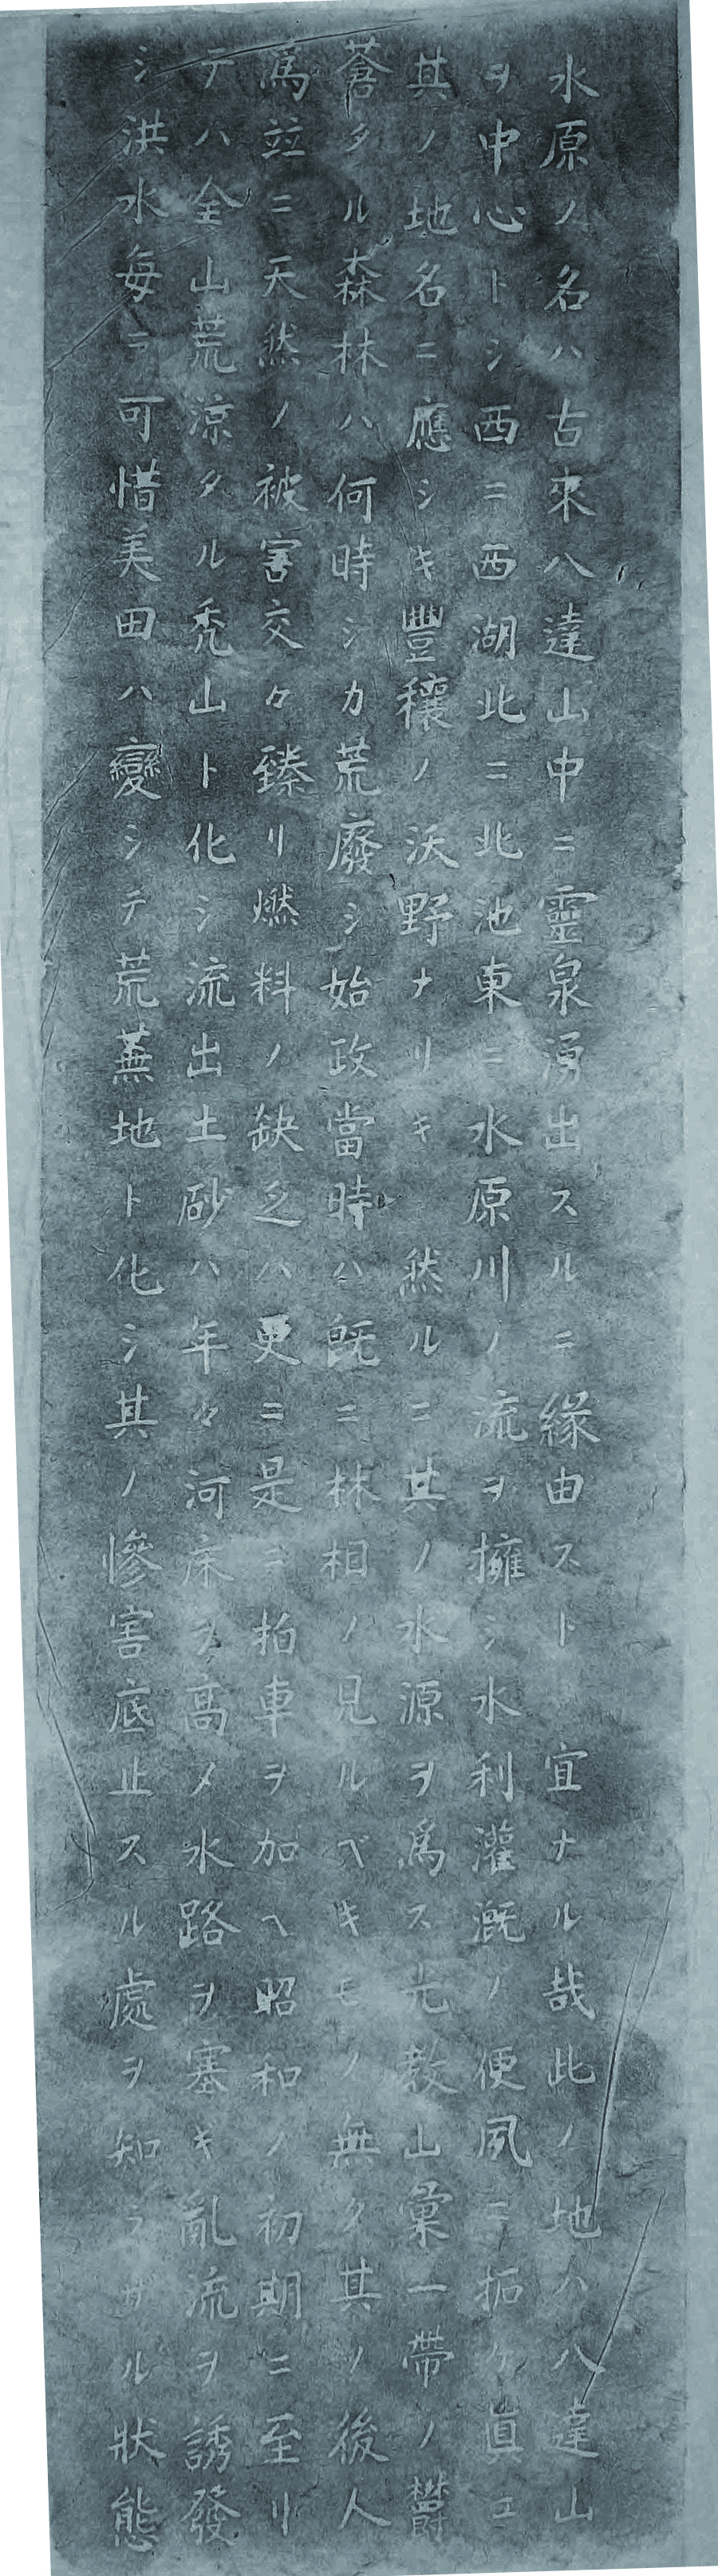 水原ノ名ハ古來八達山中ニ靈泉湧出スルニ緣由スト　宜ナル哉此ノ地ハ八達山
ヲ中心トシ西ニ西湖北ニ北池東ニ水原川ノ流ヲ擁シ水利灌漑ノ便夙ニ拓ケ眞ニ
其ノ地名ニ應シキ豐穰ノ沃野ナリキ　然ルニ其ノ水源ヲ爲ス光敎山彙一帶ノ欝
蒼タル森林ハ何時シカ荒廢シ始政當時ハ旣ニ林相ノ見ルベキモノ無ク其ノ後人
爲竝ニ天然ノ被害交々臻リ燃料ノ缺乏ハ更ニ是ニ拍車ヲ加ヘ昭和ノ初期ニ至リ
テハ全山荒涼タル禿山ト化シ流出土砂ハ年々河床ヲ高メ水路ヲ塞ギ亂流ヲ誘發
シ洪水每ニ可惜美田ハ變シテ荒蕪地ト化シ其ノ慘害底止スル處ヲ知ラザル狀態